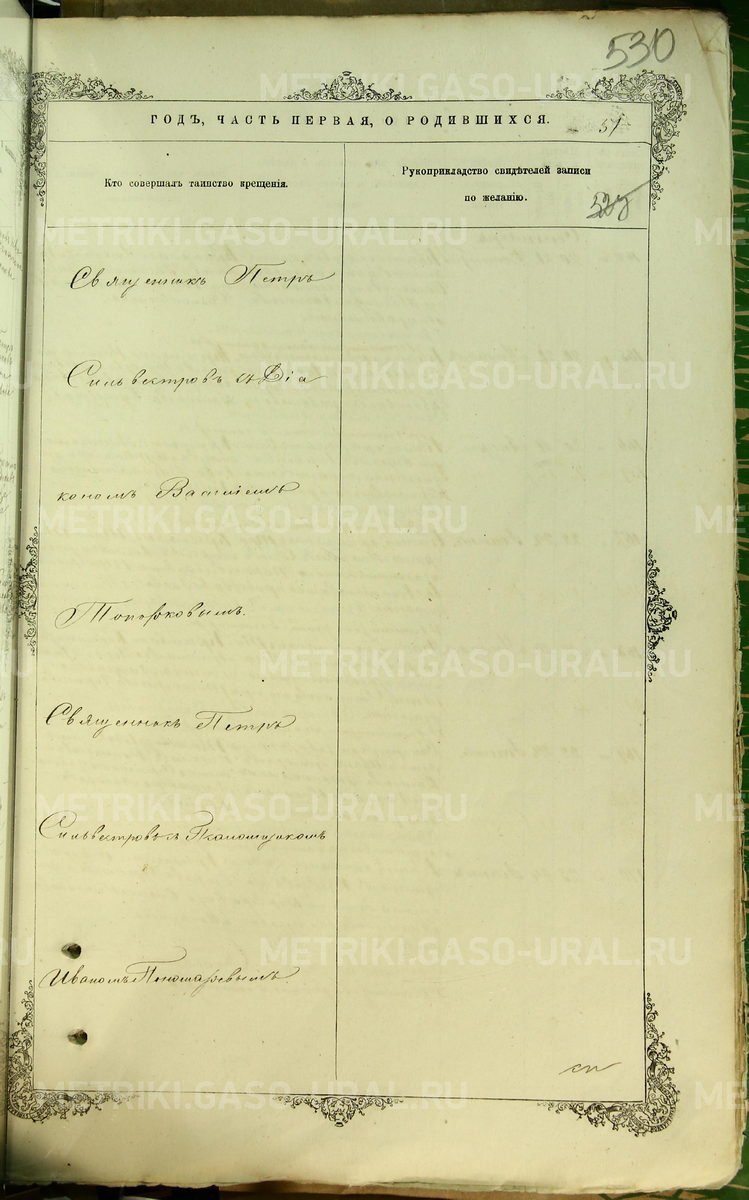 530
ГОДЪ, ЧАСТЬ ПЕРВАЯ, О РОДИВШИХСЯ.
51
Кто совершалъ таинство крещенія.
Рукоприкладство свидѣтелей записи
по желанію.
Священникъ Петръ
Сильвестровъ съ Діа
кономъ Василіемъ
Топорковымъ.
Священникъ Петръ
Сильвестровъ съ Пономарикомъ
Иваномъ Пономаревымъ
METRIKI.GASO-URAL.RU